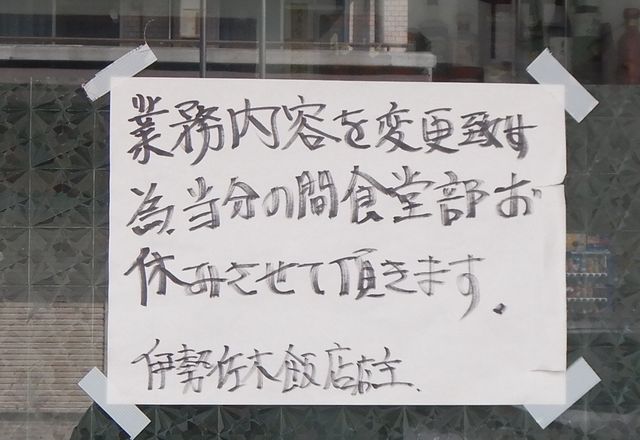 業務内容を変更致す
為、当分の間食堂部お
休みさせて頂きます。
伊勢佐木飯店店主、